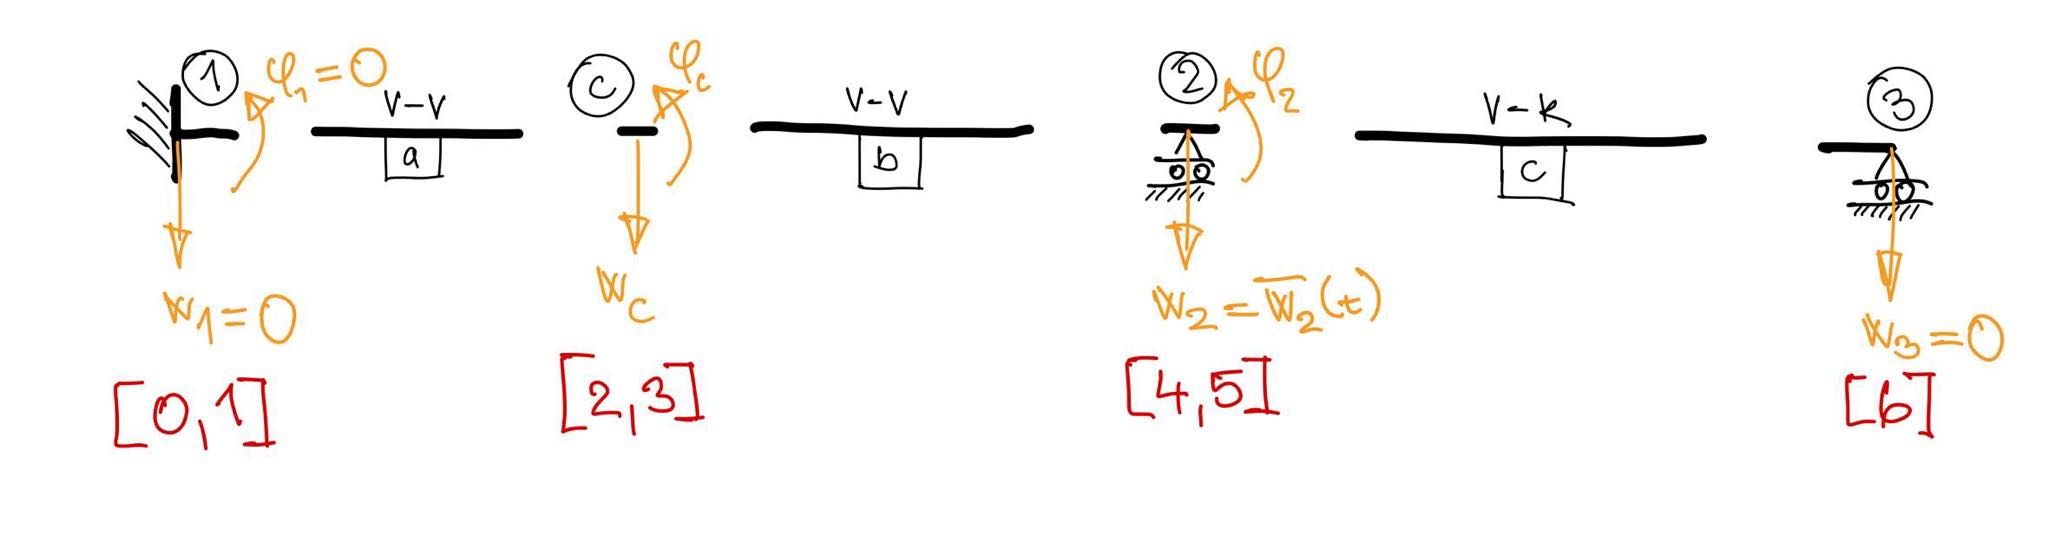 1
φ₁ = 0
V-V
a
w₁ = 0
[0,1]
c
φc
wc
[2,3]
V-V
b
2
φ₂
w₂ = w̅₂(t)
[4,5]
V-k
c
3
w₃ = 0
[6]